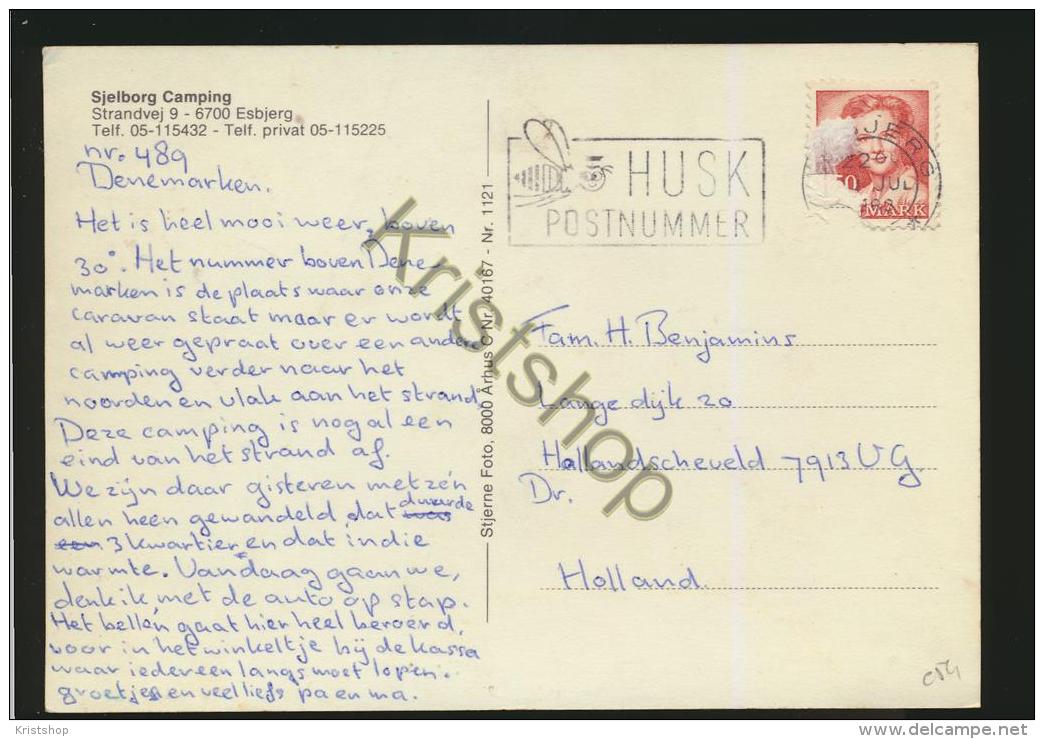 Sjelborg Camping
Strandvej 9 - 6700 Esbjerg
Telf. 05-115432 - Telf. privat 05-115225
nr. 489
Denemarken.
Het is heel mooi weer, boven
30°. Het nummer boven Dene-
marken is de plaats waar onze
caravan staat maar er wordt
al weer gepraat over een andere
camping verder naar het
noorden en vlak aan het strand
Deze camping is nogal een
eind van het strand af.
We zijn daar gisteren met z'n
allen heen gewandeld, dat duurde
3 kwartier en dat in die
warmte. Vandaag gaan we,
denk ik, met de auto op stap.
Het bellen gaat hier heel beroerd,
voor in het winkeltje bij de kassa
waar iedereen langs moet lopen.
groetjes en veel liefs pa en ma.
Stjerne Foto, 8000 Århus C Nr. 40167 - Nr. 1121
HUSK
POSTNUMMER
MARK
Fam. H. Benjamins
Lange dijk 20
Hollandscheveld 7913 VG
Dr.
Holland
Kristshop
Kristshop
delcampe.net